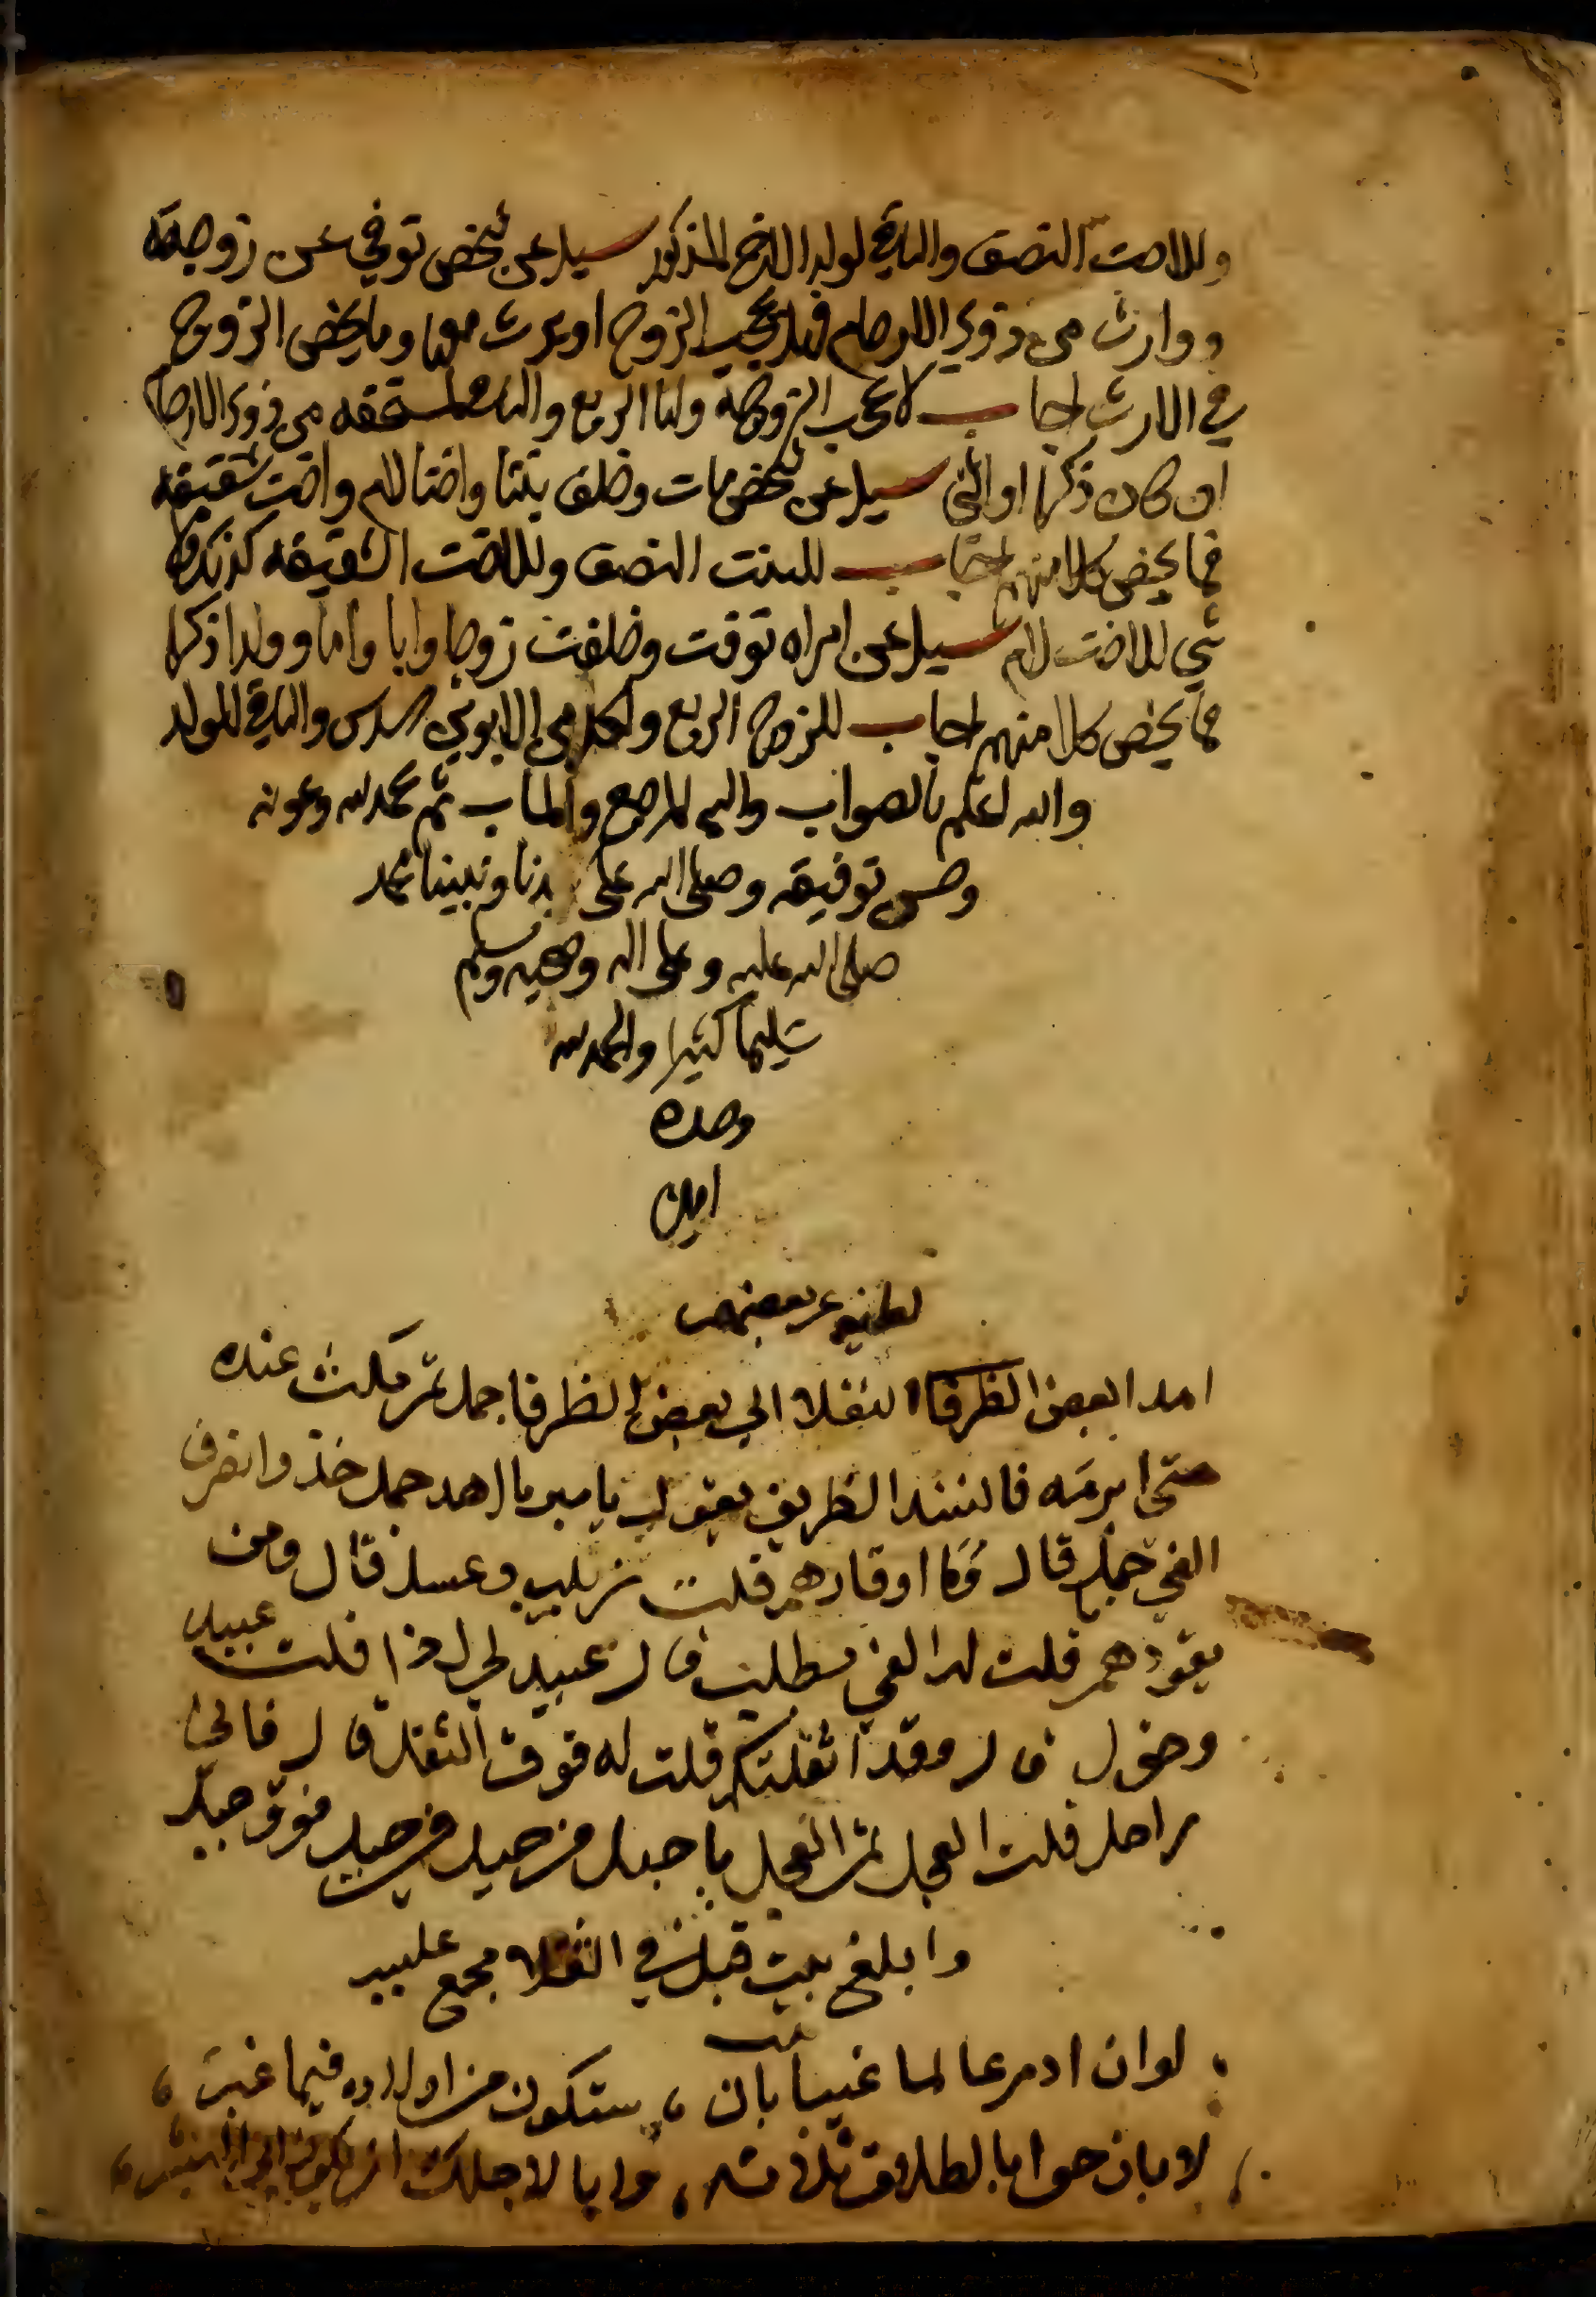 وللاخت النصف والباقي لولد الاخ المذكور سيل عن شخص توفي عن زوجته
ووارث من ذوي الارحام فهل يحجب الزوج او يرث معها وما يخص الزوج
في الارث اجاب لا يحجب الزوجة ولها الربع والباقي لمستحقه من ذوي الارحام
ان كان ذكرا او انثى سيل عن شخص مات وخلف بنتا واختا لام واخت شقيقه
فما يخص كلا منهم اجاب للبنت النصف وللاخت الشقيقه كذلك ولا
شي للاخت للام سيل عن امراه توفت وخلفت زوجا وابا واما وولدا ذكرا
فما يخص كلا منهم اجاب للزوج الربع ولكل من الابوين السدس والباقي للولد
والله اعلم بالصواب واليه المرجع والماب تم بحمد الله وعونه
وحسن توفيقه وصلى الله على سيدنا ونبينا محمد
صلى الله عليه وعلى اله وصحبه وسلم
تسليما كثيرا والحمد لله
وحده
امين
لطيفه عن بعضهم
اهدا بعض الثقلا الي بعض الظرفا جمل ثم مكث عنده
حتى ابرمه فانشد الظريف يقول يا مبرما اهدا جمل خذ وانصرف
الفي جمل قال وما اوقارهم قلت زبيب وعسل قال ومن
يقودهم قلت له الفي بطل قال عبيد لي اذا قلت عبيد
وخول قال وقد اثقلتكم قلت له فوق الثقل قال فاني
راحل قلت العجل ثم العجل يا جبل من جبل في جبل فوق جبل
لو ان ادم عالما غيبا بان ستكون من اولاده فيما غبر
لابان حوا بالطلاق ثلاثة وابا لاجلك ان يكون ابي البشر